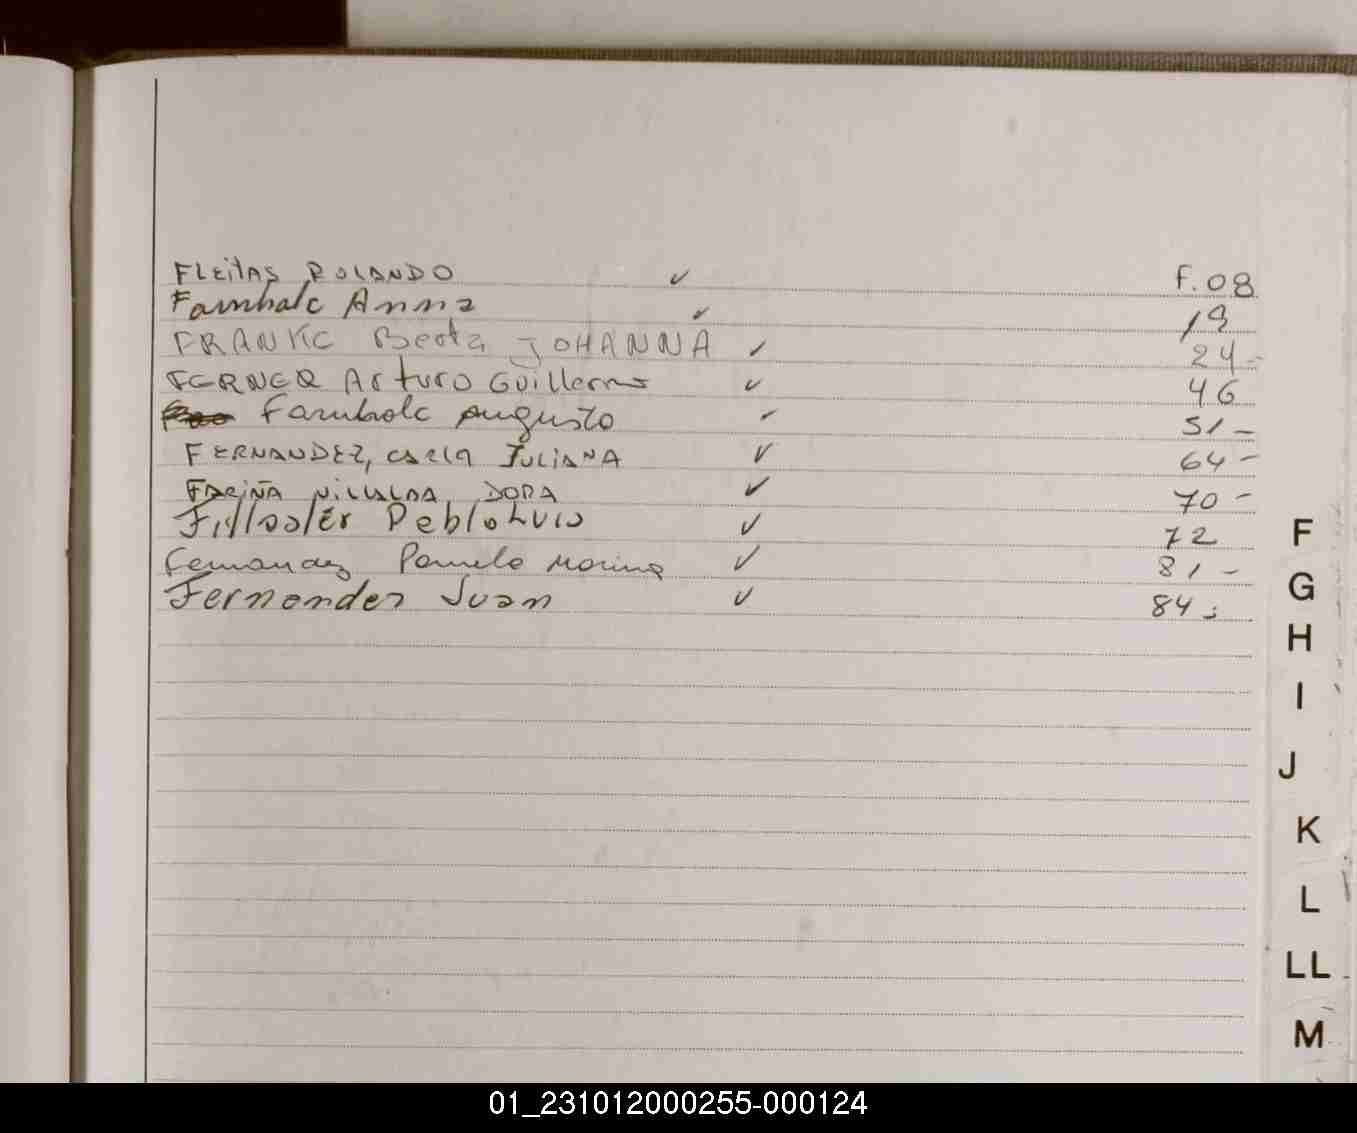 FLEITAS ROLANDO ✓ F.08
Farnholc Anna ✓ 19
FRANKE Berta JOHANNA ✓ 24-
FERNER Arturo Guillermo ✓ 46
Farnholc Augusto ✓ 51-
FERNANDEZ, CARLA JULIANA ✓ 64-
FARIÑA VILLALBA, DORA ✓ 70-
Pablo Luis ✓ 72
Fernandez Pamela Marina ✓ 81-
Fernandez Juan ✓ 84-
F
G
H
I
J
K
L
LL
M
01_231012000255-000124